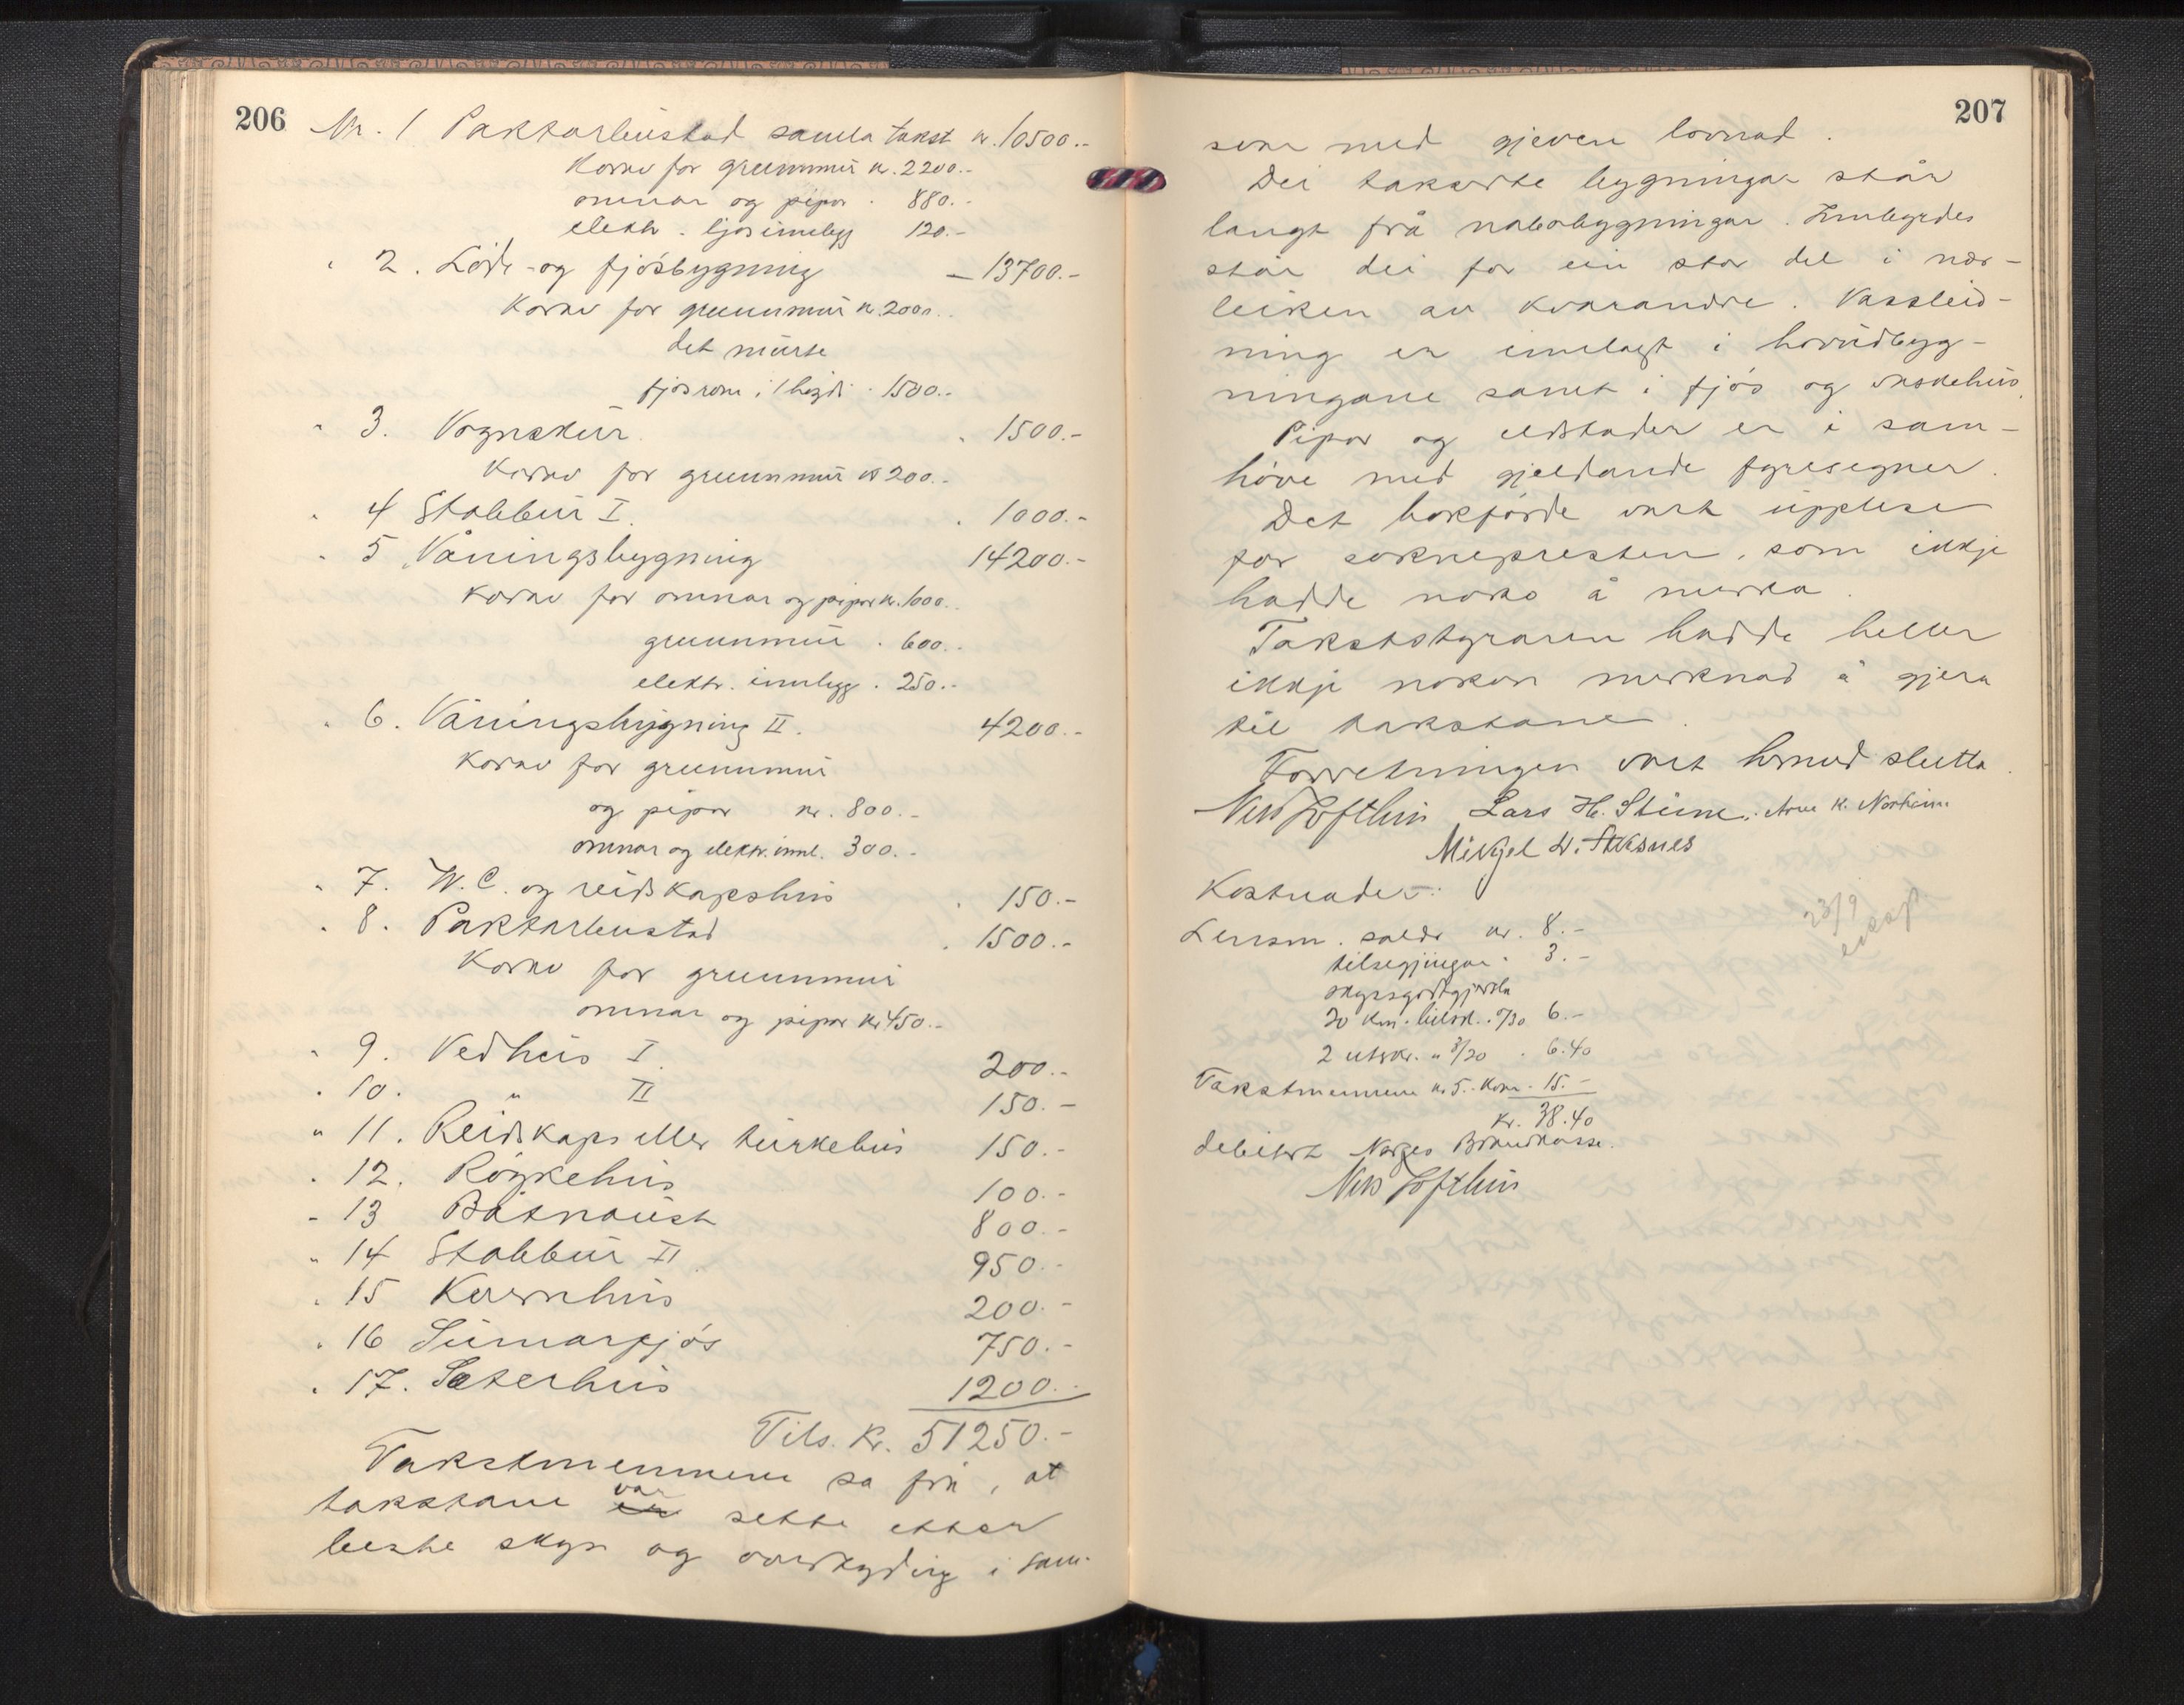 206
Nr. 1 Paktarbustad samla takst kr. 10500.-
Korav for grunnmur kr. 2200.-
omnar og pipor " 880.-
elektr. ljosinnlegg 120.-
" 2. Löde- og fjösbygning — 13700.-
Korav for grunnmur kr. 2000.-
det murte
fjösrom i 1 högdi " 1500.-
" 3. Vognskur " 1500.-
Korav for grunnmur kr 200.-
" 4 Stabbur I. " 1000.-
" 5 Våningsbygning 14200.-
Korav for omnar og pipor kr. 1000.-
grunnmur " 600.-
elektr. innlegg " 250.-
" 6. Våningsbygning II. 4200.-
Korav for grunnmur
og pipor kr. 800.-
omnar og elektr. innl. 300.-
" 7. W.C. og reidskapshus " 150.-
" 8. Paktarbustad " 1500.-
Korav for grunnmur
omnar og pipor kr 450.-
" 9. Vedhus I. 200.-
" 10. " II 150.-
" 11. Reidskaps eller turkehus 150.-
" 12. Röykehus 100.-
" 13 Båtnaust 800.-
" 14 Stabbur II 950.-
" 15 Kvernhus 200.-
" 16 Sumarfjös 750.-
" 17. Sæterhus 1200.-
Tils. kr. 51250.-
Takstmennene sa frå, at
takstane er var sette etter
beste skyn og overtyding i sam-
207
svar med gjeven lovnad.
Dei takserte bygningar står
langt frå nabobygningar. Innbyrdes
står dei for ein stor del i nær-
leiken av kvarandre. Vassleid-
ning er innlagt i hovudbyg-
ningane samt i fjös og vaskehus.
Pipor og eldstader er i sam-
höve med gjeldande fyresegner.
Det bokförde vart upplese
for soknepresten, som ikkje
hadde noko å merka.
Takststyraren hadde heller
ikkje nokon merknad å gjera
til takstane.
Forretningen vart hermed slutta.
Nils Lofthus Lars H. Stine. Arne K. Norheim
Mikjel W. Aksnes
Kostnader:
Lensm. salær kr. 8.-
tilsegjingar " 3.-
skyssgodtgjersla
20 km. bilsk. " /30 6.-
2 utskr. " 3/20 " 6.40
Takstmennene kr 5.- kvar " 15.-
kr. 38.40
debitert Norges Brandkasse.
Nils Lofthus
23/9